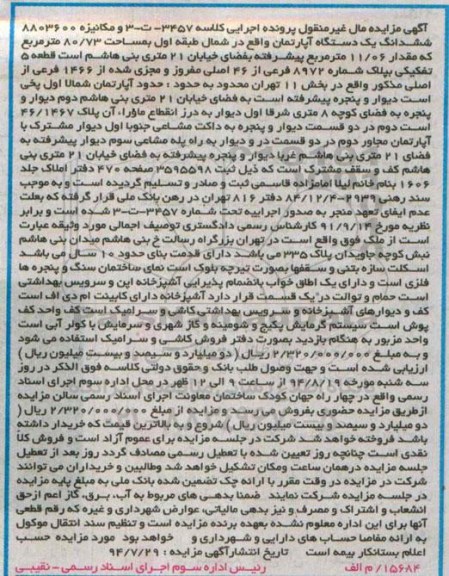 آگهی مزایده مال غیرمنقول پرونده اجرایی کلاسه ۳۴۵۷- ت-۳ و مکانیزه ۸۸۰۳۶۰۰
ششدانگ یک دستگاه آپارتمان واقع در شمال طبقه اول بمساحت ۸۰/۷۳ مترمربع
که مقدار ۱۱/۰۶ مترمربع پیشرفته بفضای خیابان ۲۱ متری بنی هاشم است قطعه ۵
تفکیکی بپلاک شماره ۸۹۷۲ فرعی از ۴۶ اصلی مفروز و مجزی شده از ۱۴۶۶ فرعی از
اصلی مذکور واقع در بخش ۱۱ تهران محدود به حدود : حدود آپارتمان شمالا اول پخی
است دیوار و پنجره پیشرفته است به فضای خیابان ۲۱ متری بنی هاشم دوم دیوار و
پنجره به فضای کوچه ۸ متری شرقا اول دیوار به درز انقطاع ماوراء آن پلاک ۴۶/۱۴۶۷
است دوم در دو قسمت دیوار و پنجره به داکت مشاعی جنوبا اول دیوار مشترک با
آپارتمان مجاور دوم در دو قسمت در و دیوار به راه پله مشاعی سوم دیوار پیشرفته به
فضای ۲۱ متری بنی هاشم غربا دیوار و پنجره پیشرفته به فضای خیابان ۲۱ متری بنی
هاشم کف و سقف مشترک است که ذیل ثبت ۳۵۹۵۵۹۸ صفحه ۴۷۰ دفتر املاک جلد
۱۶۰۶ بنام خانم لیلا امامزاده قاسمی ثبت و صادر و تسلیم گردیده است و به موجب
سند رهنی ۲۹۳۹-۸۴/۱۲/۴ دفتر ۸۱۶ تهران در رهن بانک ملی قرار گرفته که بعلت
عدم ایفای تعهد منجر به صدور اجراییه تحت شماره ۳۴۵۷-ت-۳ شده است و برابر
نظریه مورخ ۹۱/۹/۴ کارشناس رسمی دادگستری توصیف اجمالی مورد وثیقه عبارت
است از ملک فوق واقع است در تهران بزرگراه رسالت خ بنی هاشم میدان بنی هاشم
نبش کوچه جاویدان پلاک ۳۳۵ می باشد دارای قدمت بنای حدود ۱۰ سال می باشد
اسکلت سازه بتنی و سقفها بصورت تیرچه بلوک است نمای ساختمان سنگ و پنجره ها
فلزی است و دارای یک اطاق خواب بانضمام پذیرایی آشپزخانه اپن و سرویس بهداشتی
است حمام و توالت در یک قسمت قرار دارد آشپزخانه دارای کابینت ام دی اف است
کف و دیوارهای آشپزخانه و سرویس بهداشتی کاشی و سرامیک است کف واحد کف
پوش است سیستم گرمایش پکیج و شومینه و گاز شهری و سرمایش با کولر آبی است
واحد مزبور به هنگام بازدید بصورت دفتر فروش کاشی و سرامیک استفاده می شود
و به مبلغ ۲/۳۲۰/۰۰۰/۰۰۰ ریال ( دو میلیارد و سیصد و بیست میلیون ریال )
ارزیابی شده است و جهت وصول طلب بانک و حقوق دولتی کلاسه فوق الذکر در روز
سه شنبه مورخه ۹۴/۸/۱۹ از ساعت ۹ الی ۱۲ ظهر در محل اداره سوم اجرای اسناد
رسمی واقع در چهار راه جهان کودک ساختمان معاونت اجرای اسناد رسمی سالن مزایده
ازطریق مزایده حضوری بفروش می رسد و مزایده از مبلغ ۲/۳۲۰/۰۰۰/۰۰۰ ریال (
دو میلیارد و سیصد و بیست میلیون ریال ) شروع و به بالاترین قیمت که خریدار داشته
باشد فروخته خواهد شد شرکت در جلسه مزایده برای عموم آزاد است و فروش کلا
نقدی است چنانچه روز تعیین شده با تعطیل رسمی مصادف گردد روز بعد از تعطیل
جلسه مزایده درهمان ساعت ومکان تشکیل خواهد شد وطالبین و خریداران می توانند
شرکت در مزایده در وقت مقرر با ارائه چک تضمین شده بانک ملی به مبلغ پایه مزایده
در جلسه مزایده شرکت نمایند ضمنا بدهی های مربوط به آب، برق، گاز اعم ازحق
انشعاب و اشتراک و مصرف و نیز بدهی مالیاتی، عوارض شهرداری و غیره که رقم قطعی
آنها برای این اداره معلوم نشده بعهده برنده مزایده است و تنظیم سند انتقال موکول
به ارائه مفاصا حساب های دارایی و شهرداری و خواهد بود مورد مزایده حسب
اعلام بستانکار بیمه است تاریخ انتشارآگهی مزایده : ۹۴/۷/۲۹
۱۵۶۸۴/ م الف رئیس اداره سوم اجرای اسناد رسمی - نقیبی